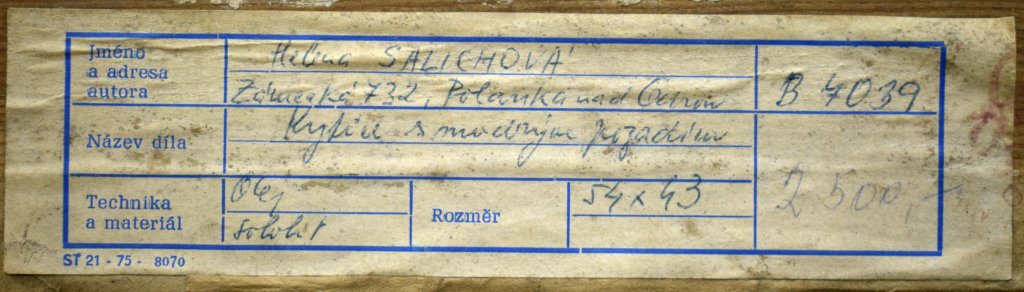 Jméno
a adresa
autora
Helena SALICHOVÁ
Zámecká 732, Polanka nad Odrou
B 4039
Název díla
Kytice s modrým pozadím
Technika
a materiál
Olej
sololit
Rozměr
54 x 43
2 500,-
ST 21 - 75 - 8070